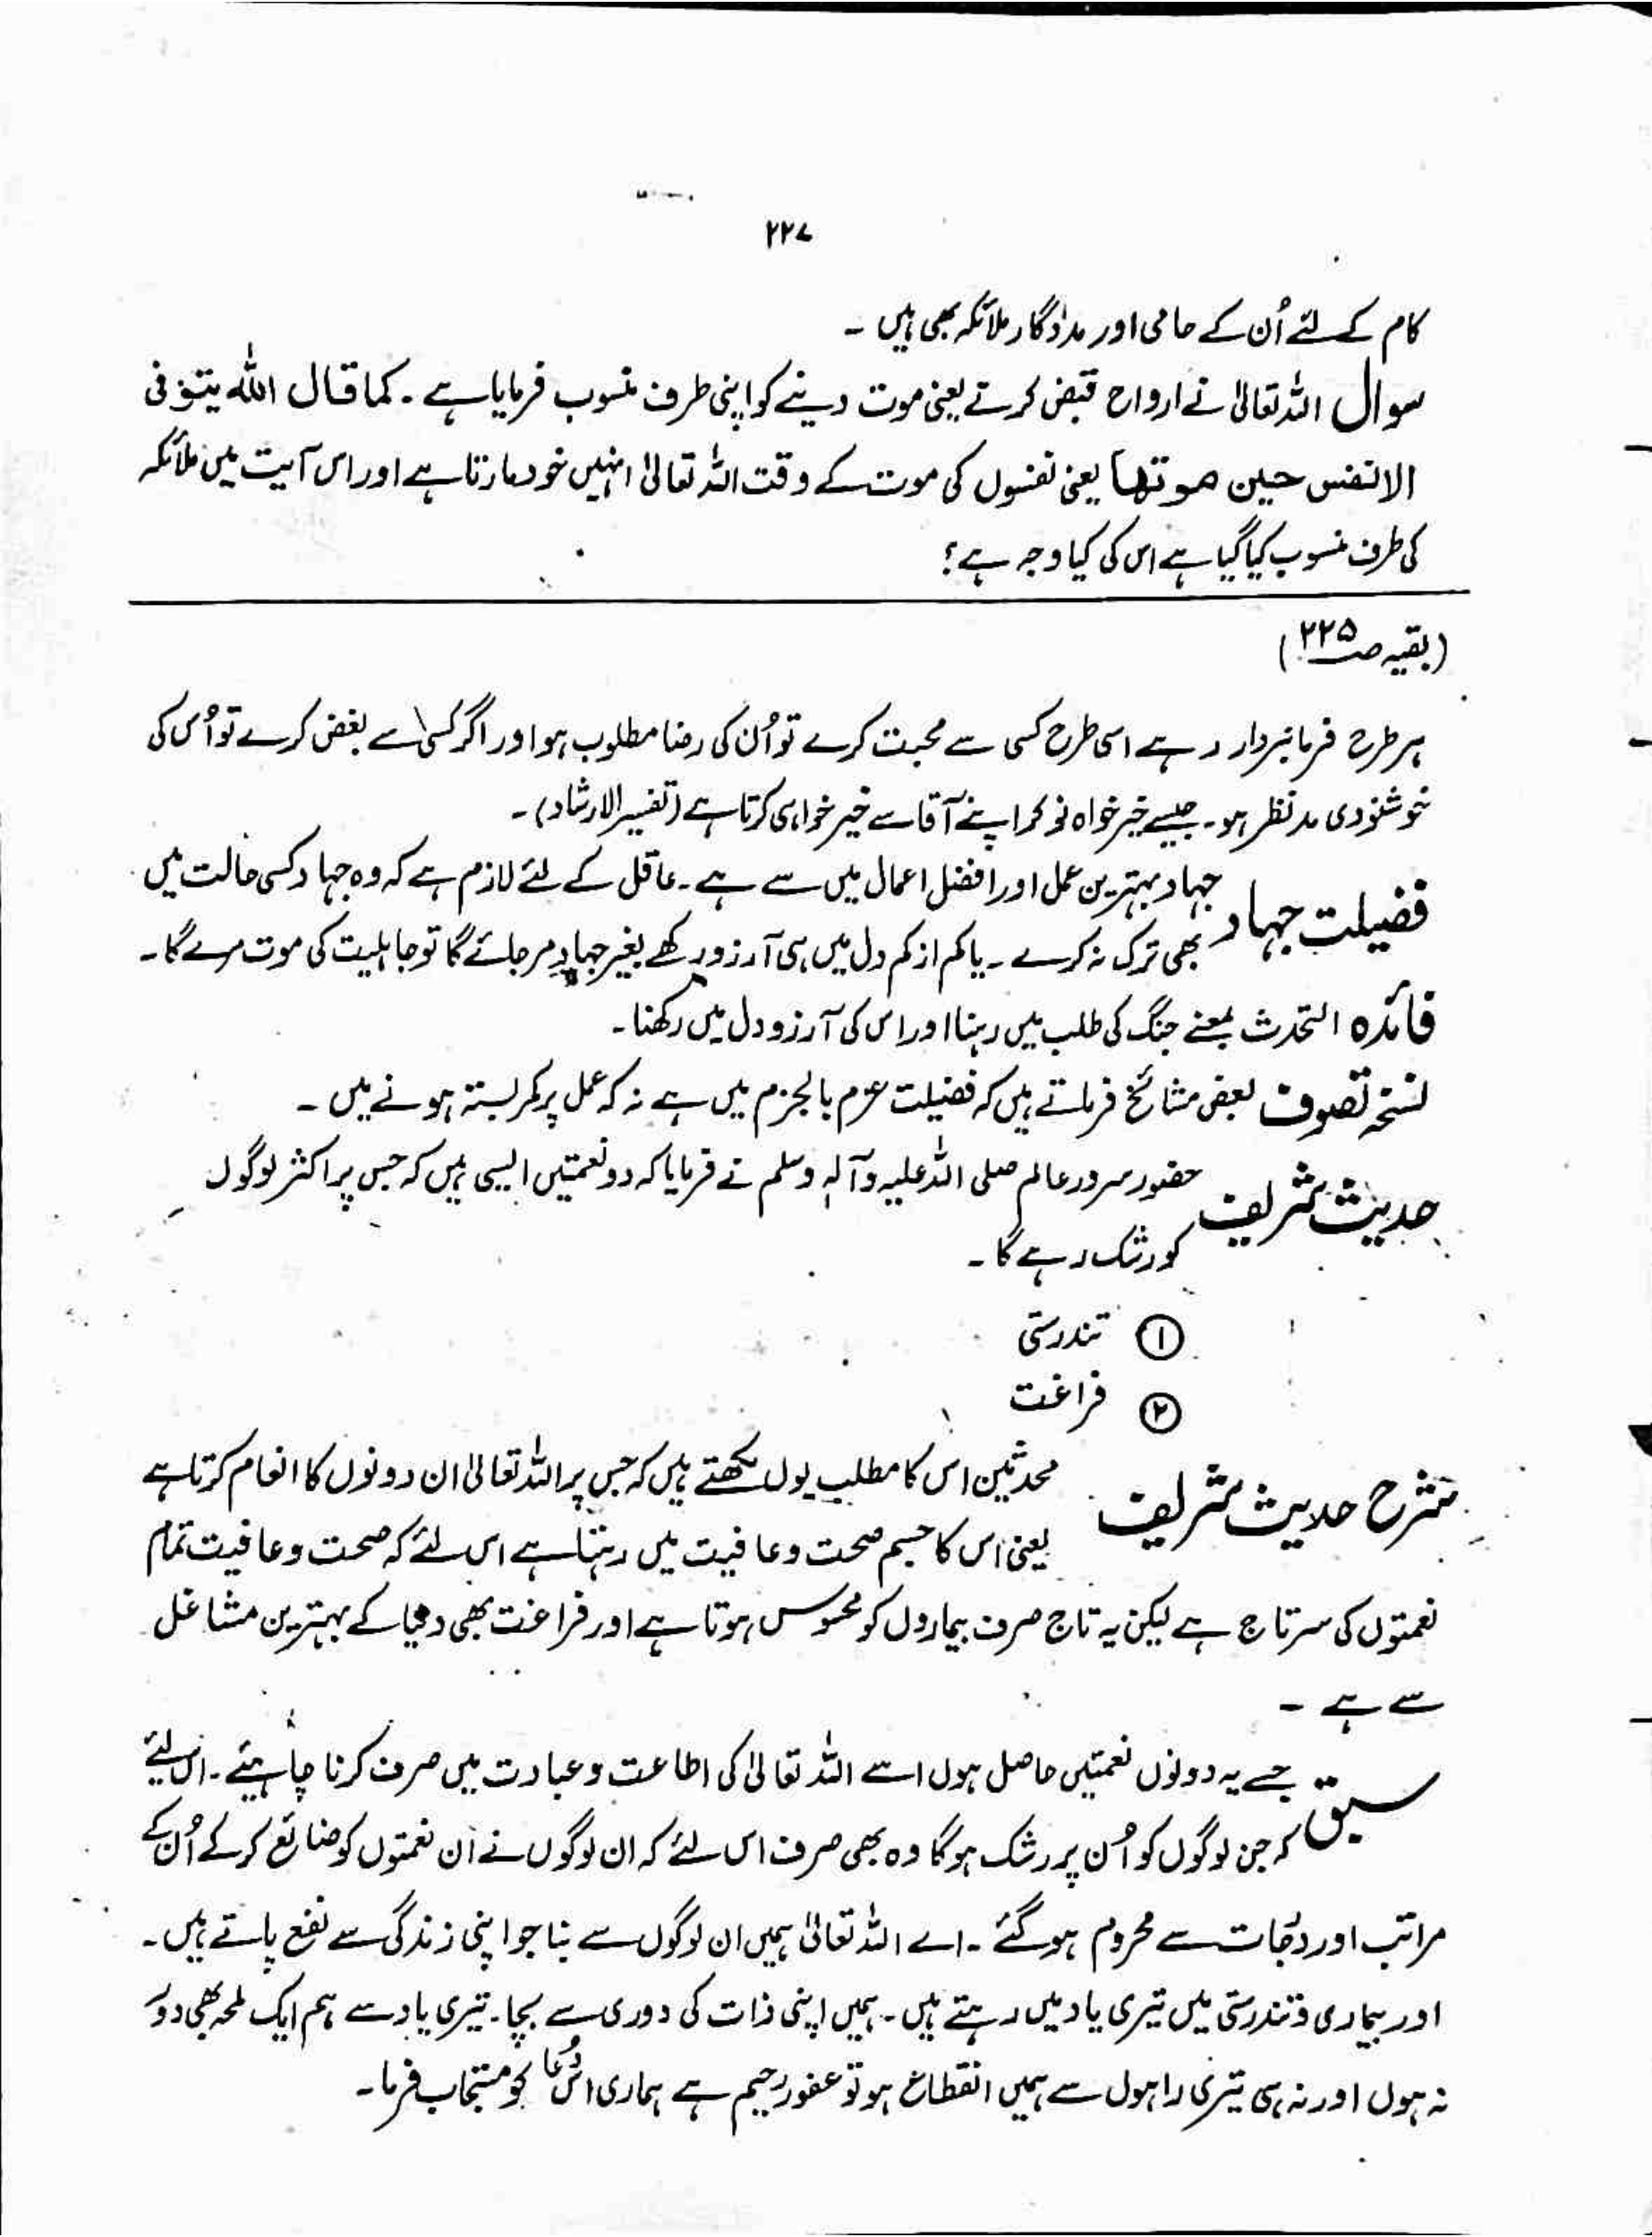 ۲۲۷
کام کے لئے اُن کے حامی اور مددگار ملائکہ بھی ہیں ۔
سوال اللہ تعالیٰ نے ارواح قبض کرتے یعنی موت دینے کو اپنی طرف منسوب فرمایا ہے ۔ کما قال اللہ یتوفی
الانفس حین موتھا یعنی نفسوں کی موت کے وقت اللہ تعالیٰ انہیں خود مارتا ہے اور اس آیت میں ملائکہ
کی طرف منسوب کیا گیا ہے اس کی کیا وجہ ہے ؟
(بقیہ صـ ۲۲۵)
ہر طرح فرمانبردار رہے اسی طرح کسی سے محبت کرے تو اُن کی رضا مطلوب ہو اور اگر کسی سے بغض کرے تو اُس کی
خوشنودی مد نظر ہو۔ جیسے خیر خواہ نوکر اپنے آقا سے خیر خواہی کرتا ہے (تفسیر الارشاد) ۔
فضیلت جہاد جہاد بہترین عمل اور افضل اعمال میں سے ہے ۔ عاقل کے لئے لازم ہے کہ وہ جہاد کسی حالت میں
بھی ترک نہ کرے ۔ یا کم از کم دل میں ہی آرزو رکھے بغیر جہاد مر جائے گا تو جاہلیت کی موت مرے گا ۔
فائدہ التحدث بمعنے جنگ کی طلب میں رہنا اور اس کی آرزو دل میں رکھنا ۔
نسخہ تصوف بعض مشائخ فرماتے ہیں کہ فضیلت عزم بالجزم میں ہے نہ کہ عمل پر کمربستہ ہونے میں ۔
حدیث شریف حضور سرور عالم صلی اللہ علیہ وآلہٖ وسلم نے فرمایا کہ دو نعمتیں ایسی ہیں کہ جس پر اکثر لوگوں
کو رشک رہے گا ۔
① تندرستی
② فراغت
شرح حدیث شریف محدثین اس کا مطلب یوں لکھتے ہیں کہ جس پر اللہ تعالیٰ ان دونوں کا انعام کرتا ہے
یعنی اس کا جسم صحت و عافیت میں رہتا ہے اس لئے کہ صحت و عافیت تمام
نعمتوں کی سرتاج ہے لیکن یہ تاج صرف بیماروں کو محسوس ہوتا ہے اور فراغت بھی دنیا کے بہترین مشاغل
سے ہے ۔
سبق جسے یہ دونوں نعمتیں حاصل ہوں اسے اللہ تعالیٰ کی اطاعت و عبادت میں صرف کرنا چاہیئے ۔ اس لئے
کہ جن لوگوں کو اُن پر رشک ہوگا وہ بھی صرف اس لئے کہ ان لوگوں نے ان نعمتوں کو ضائع کرکے اُن کے
مراتب اور درجات سے محروم ہوگئے ۔ اے اللہ تعالیٰ ہمیں ان لوگوں سے بنا جو اپنی زندگی سے نفع پاتے ہیں ۔
اور بیماری و تندرستی میں تیری یاد میں رہتے ہیں ۔ ہمیں اپنی ذات کی دوری سے بچا۔ تیری یاد سے ہم ایک لمحہ بھی دور
نہ ہوں اور نہ ہی تیری راہوں سے ہمیں انقطاع ہو تو غفور رحیم ہے ہماری اس دُعا کو مستجاب فرما ۔